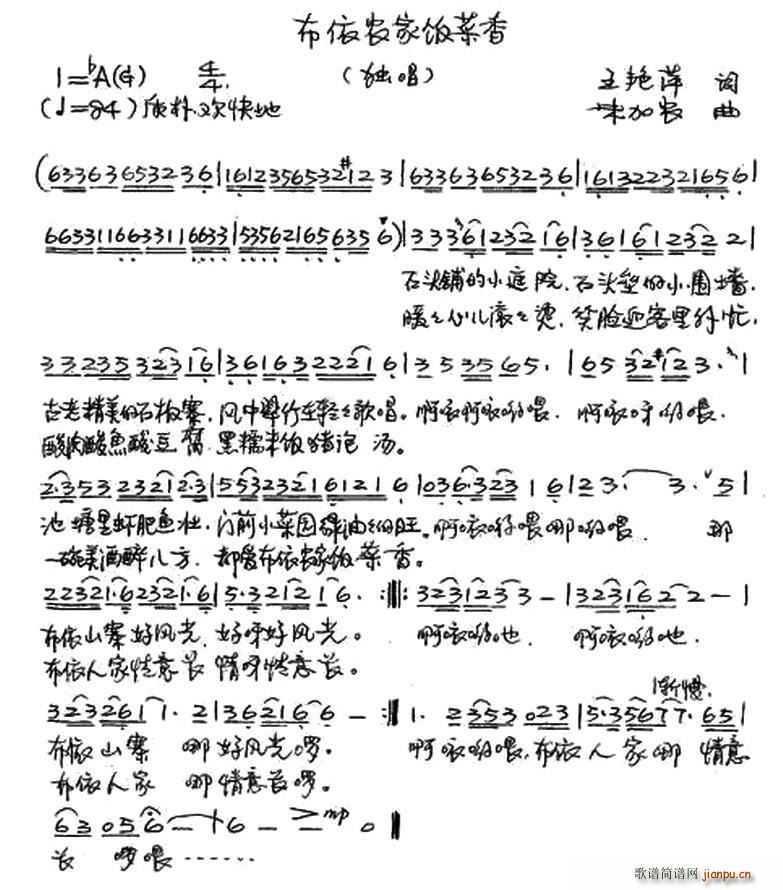 布依农家饭菜香
1=♭A(G) 4/4 (独唱) 王艳萍 词
(♩=84) 质朴欢快地 朱加农 曲
(6336365323 6|1612356532#12 3|6336365323 6|16132232165 6|
6633116633116633|535621656356)|3 3 361232 16|361612 32 2|
石头铺的小庭院,石头垒的小围墙,
暖暖心儿滚滚烫,笑脸迎客里外忙,
3323532316|3616322216|3 53565.|65 32#123.|
古老精美的石板寨,风中翠竹在轻轻歌唱。啊哝啊哝哟喂,啊哝呀哟喂,
酸肉酸鱼酸豆腐 黑糯米饭猪泡汤。
2·3533232 12·3|5532321 61216|036·32316|23. 3. 5|
池塘里虾肥鱼壮,门前小菜园绿油油的旺。啊哝哟喂哪哟喂 那
一碗美酒醉八方,都是布依农家饭菜香。
22321·62321·6|5·3212 16.:‖:3231233—|3231622—|
布依山寨好风光,好呀好风光。啊哝哟也,啊哝哟也,
布依人家情意长 情呀情意长。
渐慢.
32326 11. 2|3621666—:‖1. 2353023|5·35677. 65|
布依山寨 哪好风光啰。啊哝哟喂,布依人家哪 情意
布依人家 哪情意长啰。
63056—|6—>—mp 0‖
长 啰喂……
歌谱简谱网
jianpu.cn